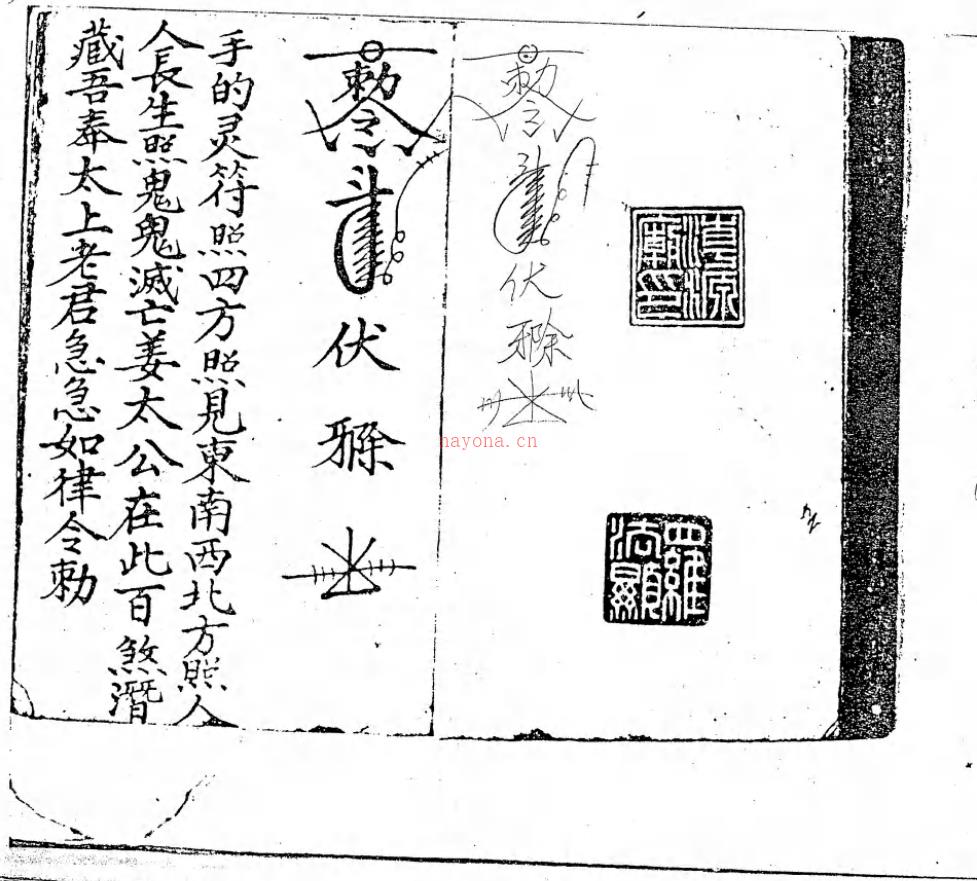 源
廟印
法顯
勅令
斗
伏
勅令
斗
伏
手的灵符照四方照見東南西北方照人
人長生照鬼鬼滅亡姜太公在此百煞潛
藏吾奉太上老君急急如律令勅
nayona.cn